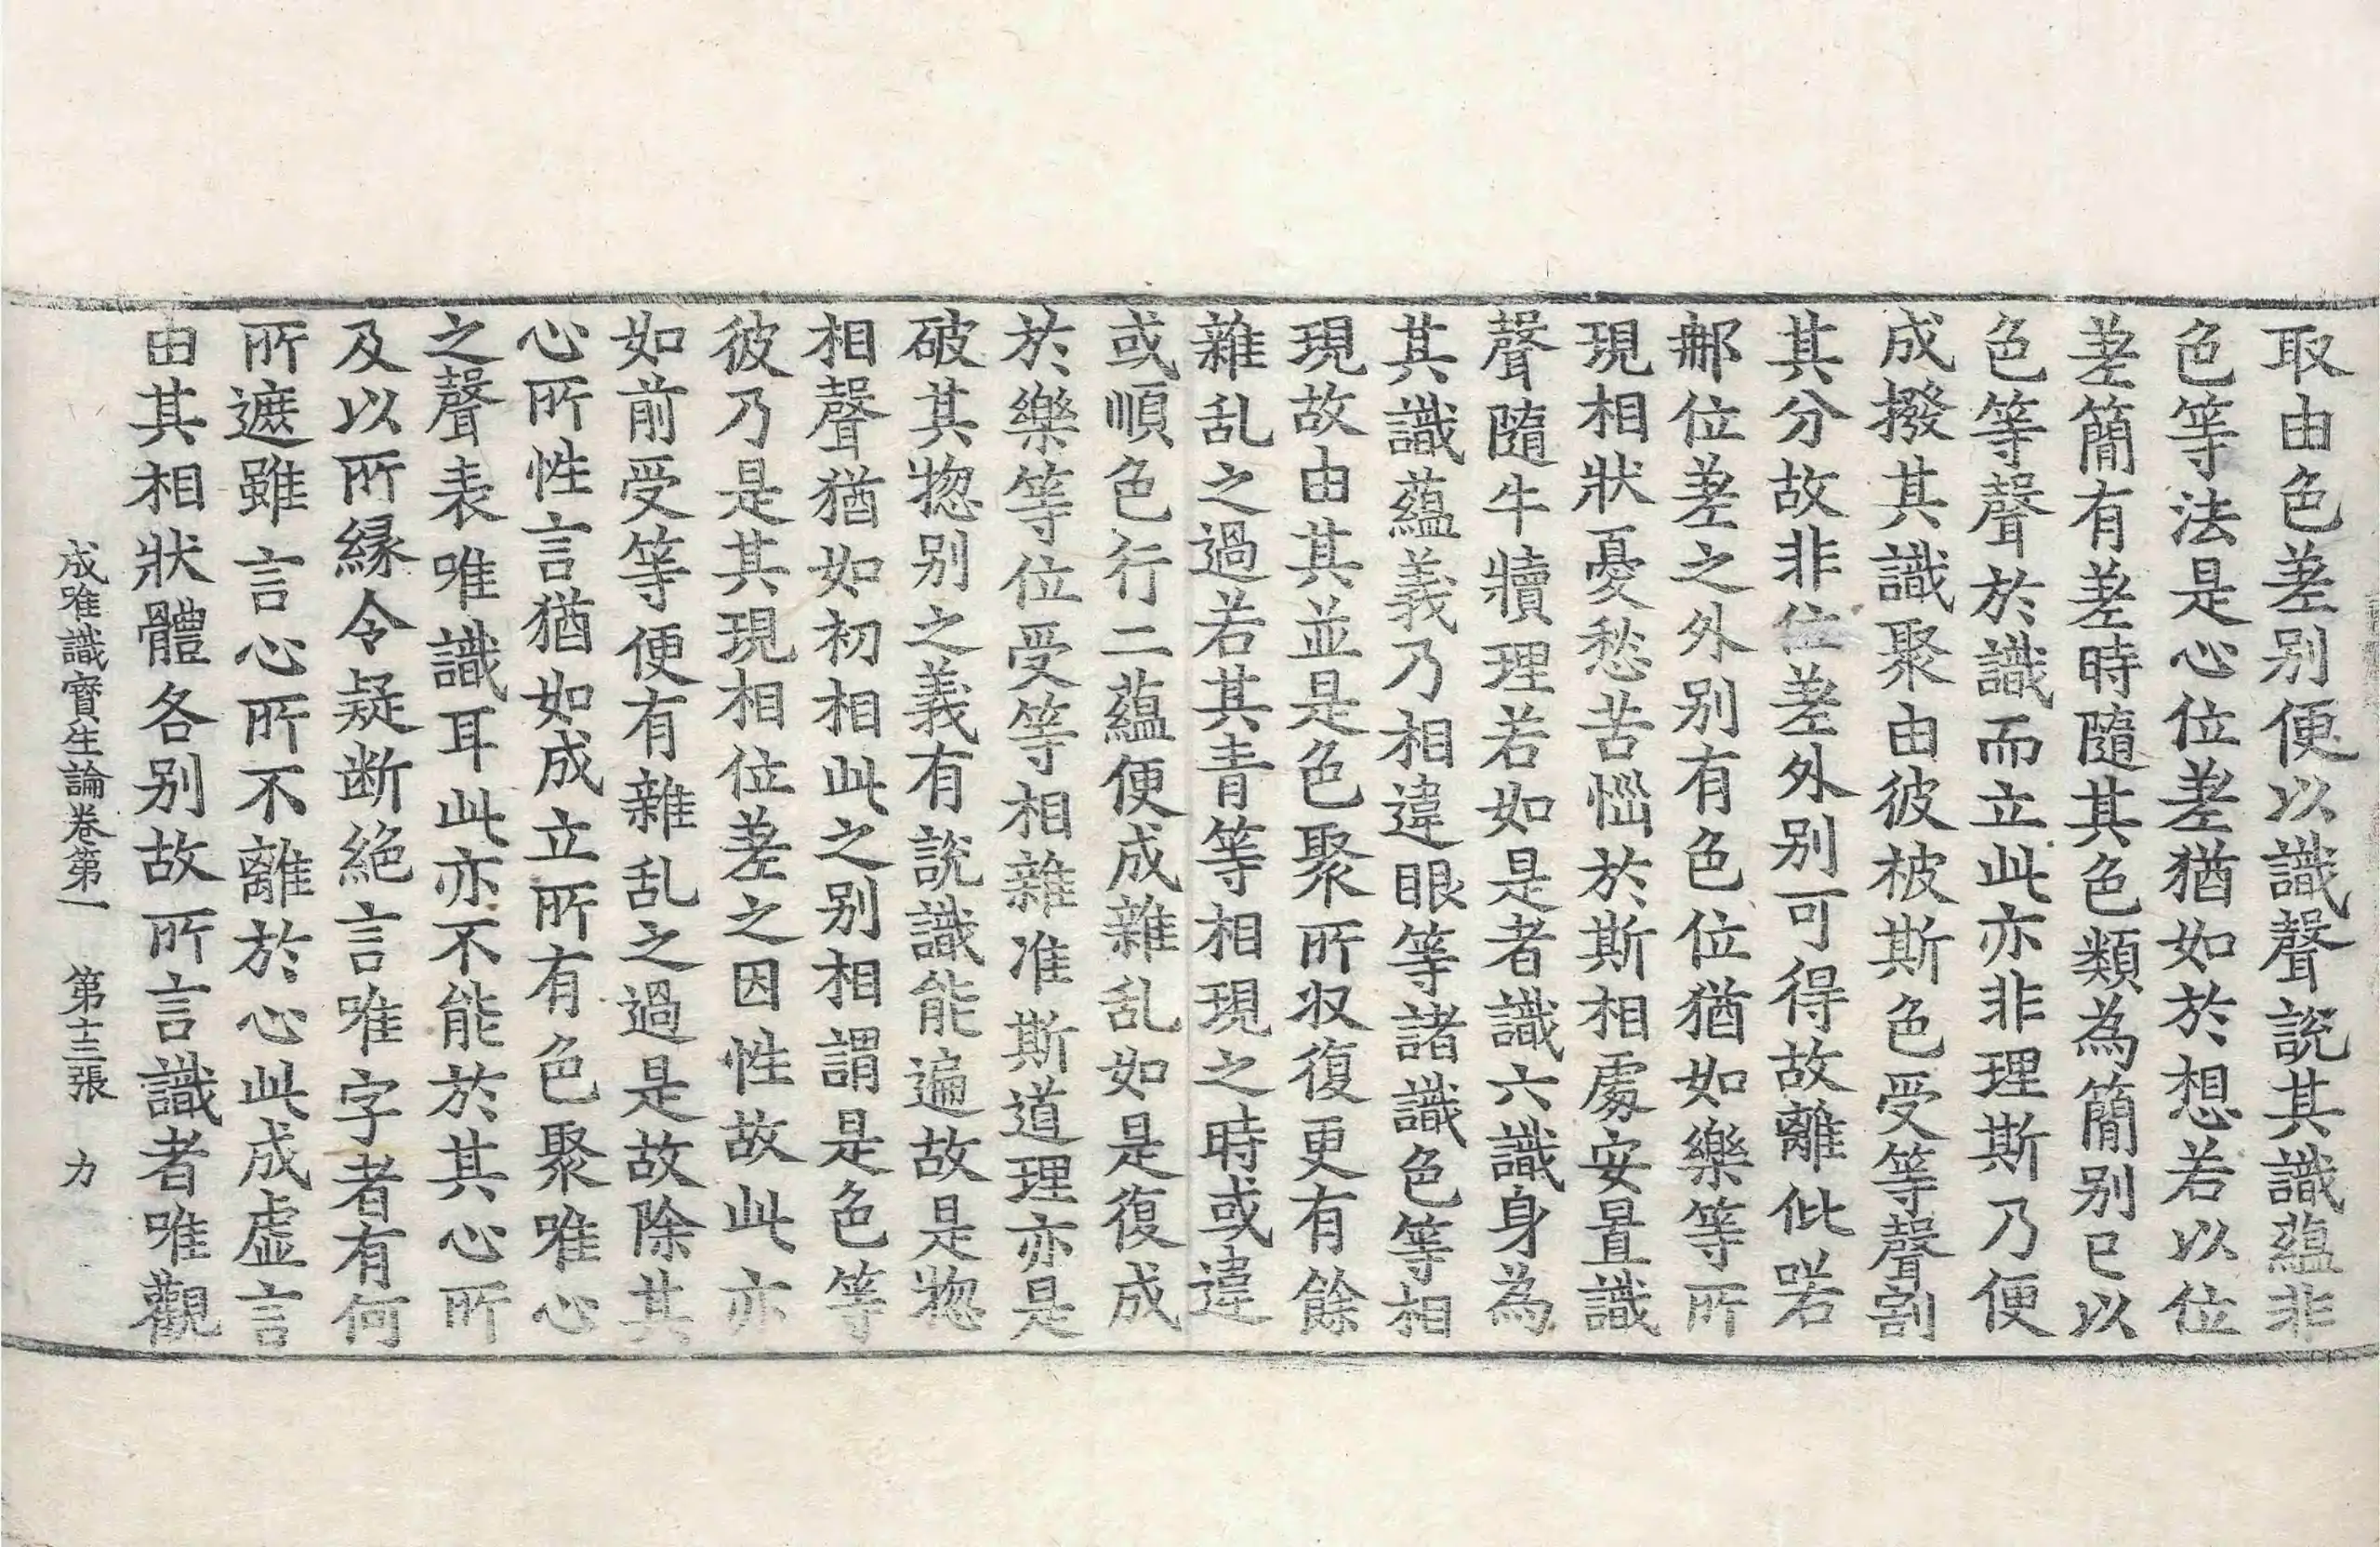 取由色差别便以識聲說其識蘊非
色等法是心位差猶如於想若以位
差簡有差時隨其色類為簡别已以
色等聲於識而立此亦非理斯乃便
成撥其識聚由彼柀斯色受等聲割
其分故非位差外别可得故離此喏
郍位差之外别有色位猶如樂等所
現相狀憂愁苦惱於斯相處安置識
聲隨牛犢理若如是者識六識身為
其識蘊義乃相違眼等諸識色等相
現故由其並是色聚所収復更有餘
雜乱之過若其青等相現之時或違
或順色行二蘊便成雜乱如是復成
於樂等位受等相雜准斯道理亦是
破其惣别之義有說識能遍故是惣
相聲猶如初相此之别相謂是色等
彼乃是其現相位差之因性故此亦
如前受等便有雜乱之過是故除其
心所性言猶如成立所有色聚唯心
之聲表唯識耳此亦不能於其心所
及以所縁令疑断絕言唯字者有何
所遮雖言心所不離於心此成虛言
由其相狀體各别故所言識者唯觀
成唯識寶生論卷第一 第十三張 力